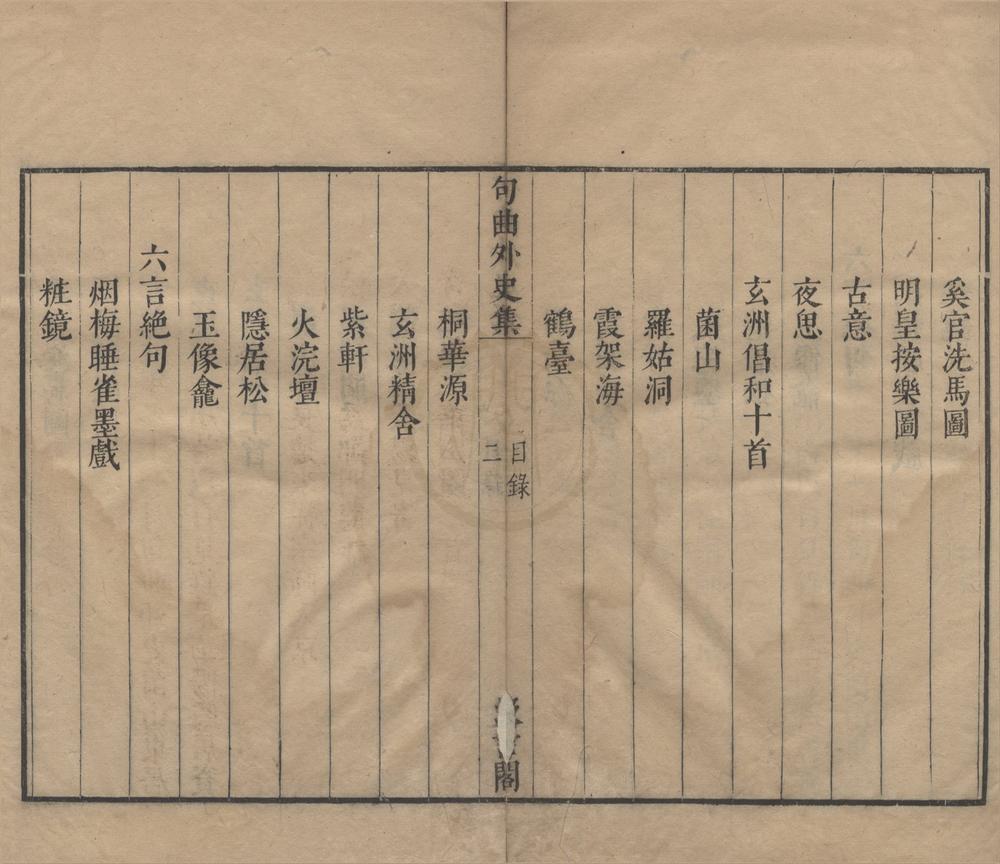 奚官洗馬圖
明皇按樂圖
古意
夜思
玄洲倡和十首
菌山
羅姑洞
霞架海
鶴臺
句曲外史集
目錄
二
閣
桐華源
玄洲精舍
紫軒
火浣壇
隱居松
玉像龕
六言絕句
烟梅睡雀墨戲
粧鏡